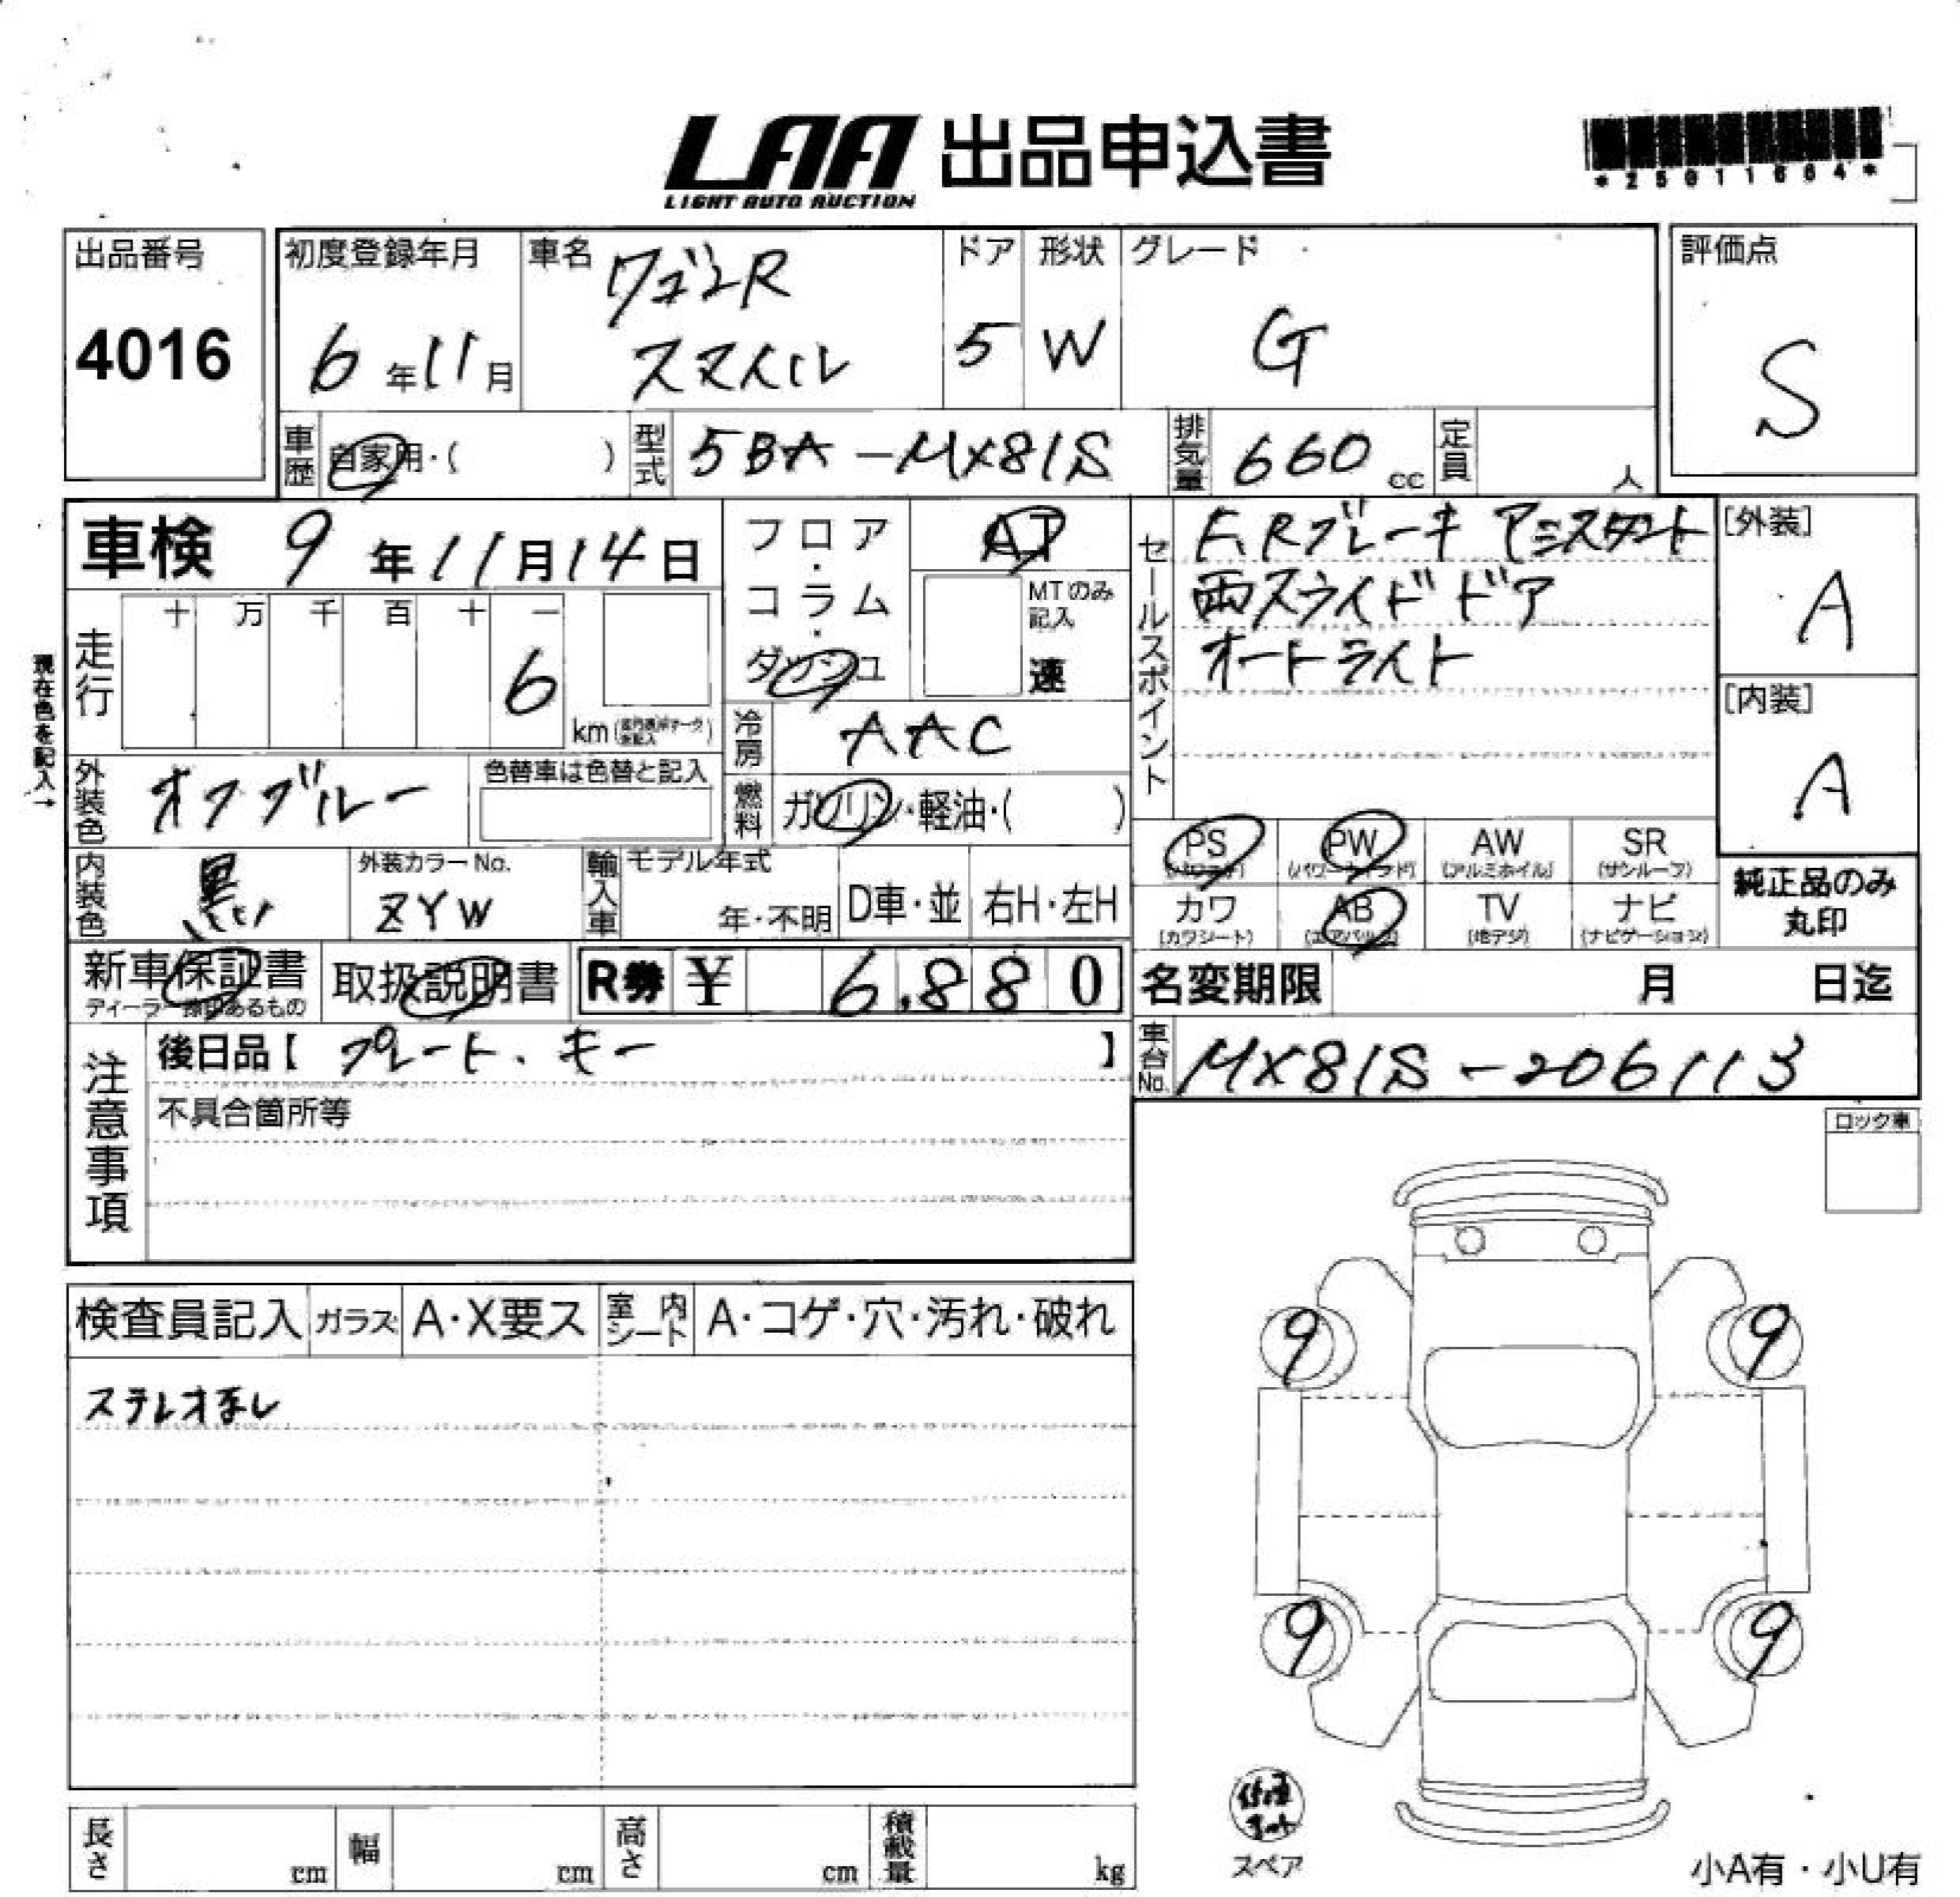 LAA 出品申込書
LIGHT AUTO AUCTION
*25011664*
出品番号
4016
初度登録年月
6年11月
車名
ワゴンR
スマイル
ドア
5
形状
W
グレード
G
評価点
S
車歴
自家用・( )
型式
5BA-MX81S
排気量
660 cc
定員
人
車検 9年11月14日
フロア・コラム・ダッシュ
AT
MTのみ記入
速
セールスポイント
F,Rブレーキ アシスタント
両スライドドア
オートライト
[外装]
A
[内装]
A
現在色を記入→
走行
十 万 千 百 十 一
6
km
冷房
AAC
外装色
オフブルー
色替車は色替と記入
燃料
ガソリン・軽油・( )
PS PW AW SR
(パワステ) (パワーウインド) (アルミホイル) (サンルーフ)
カワ AB TV ナビ
(カワシート) (エアバック) (地デジ) (ナビゲーション)
純正品のみ
丸印
内装色
黒
外装カラーNo.
ZYW
輸入車
モデル年式
年・不明
D車・並
右H・左H
新車保証書
取扱説明書
R券 ¥ 6,880
名変期限 月 日迄
車台No.
MX81S-206113
注意事項
後日品【 プレート、キー 】
不具合箇所等
ロック車
検査員記入
ガラス
A・X要ス
室内シート
A・コゲ・穴・汚れ・破れ
ステレオなし
9 9
9 9
スペア
長さ cm
幅 cm
高さ cm
積載量 kg
小A有・小U有